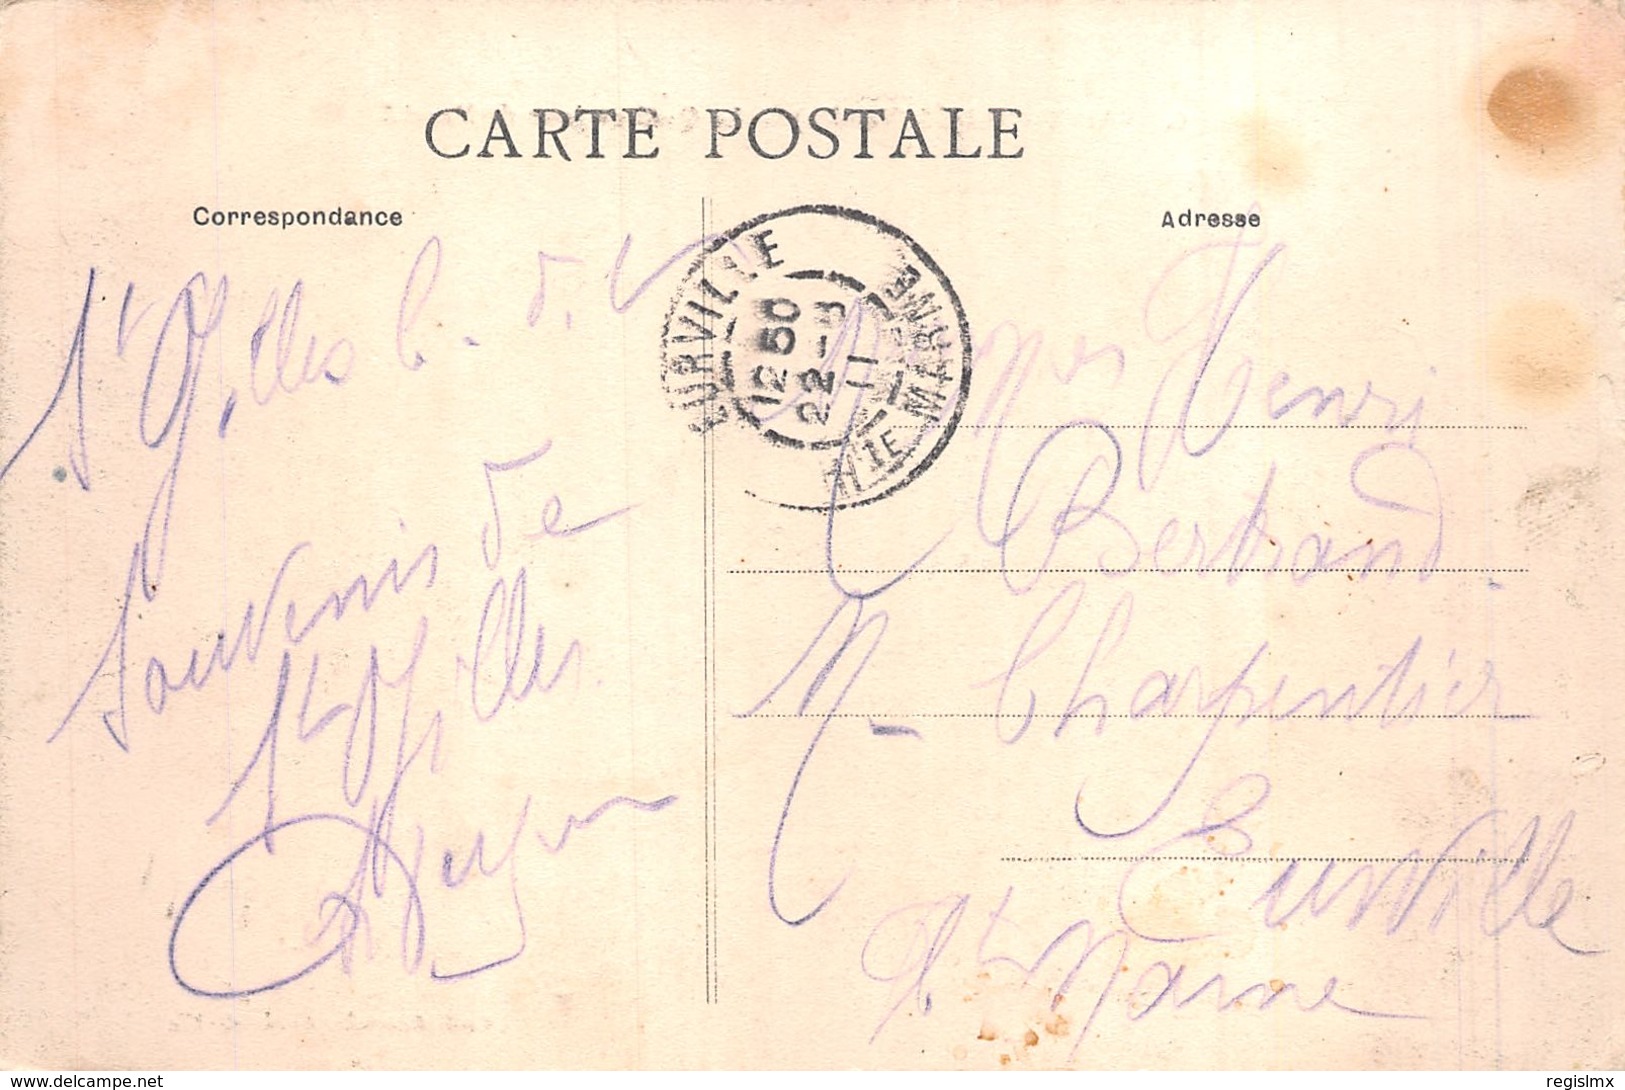 CARTE POSTALE
Correspondance
St Gilles C. d. V
Souvenir de
St Gilles
Adresse
EURVILLE
12 50
22 - 8
11
HTE MARNE
Mmes Henri
Bertrand
Charpentier
Eurville
Hte Marne
www.delcampe.net
regislmx